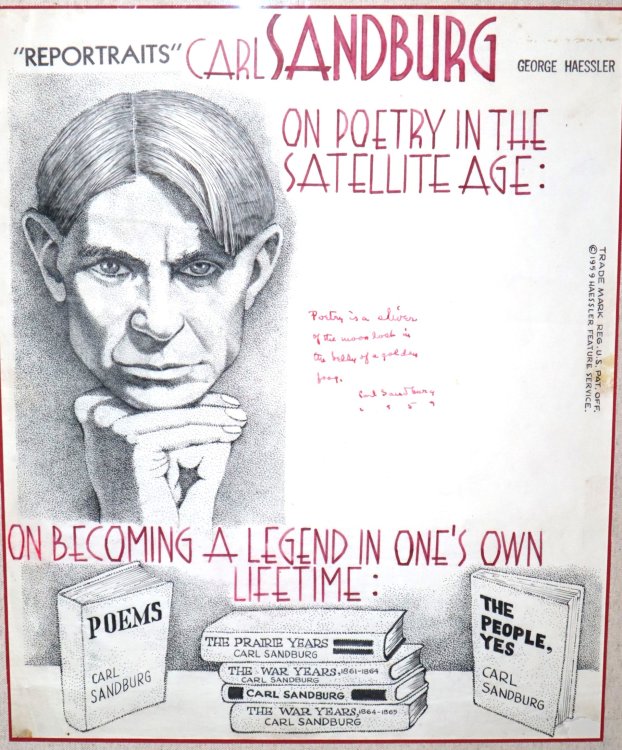 "REPORTRAITS" CARL SANDBURG GEORGE HAESSLER
ON POETRY IN THE
SATELLITE AGE:
Poetry is a sliver
of the moon lost in
the belly of a golden
frog.
Carl Sandburg
1959
TRADE MARK REG. U.S. PAT. OFF.
©1959 HAESSLER FEATURE SERVICE.
ON BECOMING A LEGEND IN ONE'S OWN
LIFETIME:
POEMS
CARL
SANDBURG
THE PRAIRIE YEARS
CARL SANDBURG
THE WAR YEARS, 1861-1864
CARL SANDBURG
CARL SANDBURG
THE WAR YEARS, 1864-1865
CARL SANDBURG
THE
PEOPLE,
YES
CARL
SANDBURG